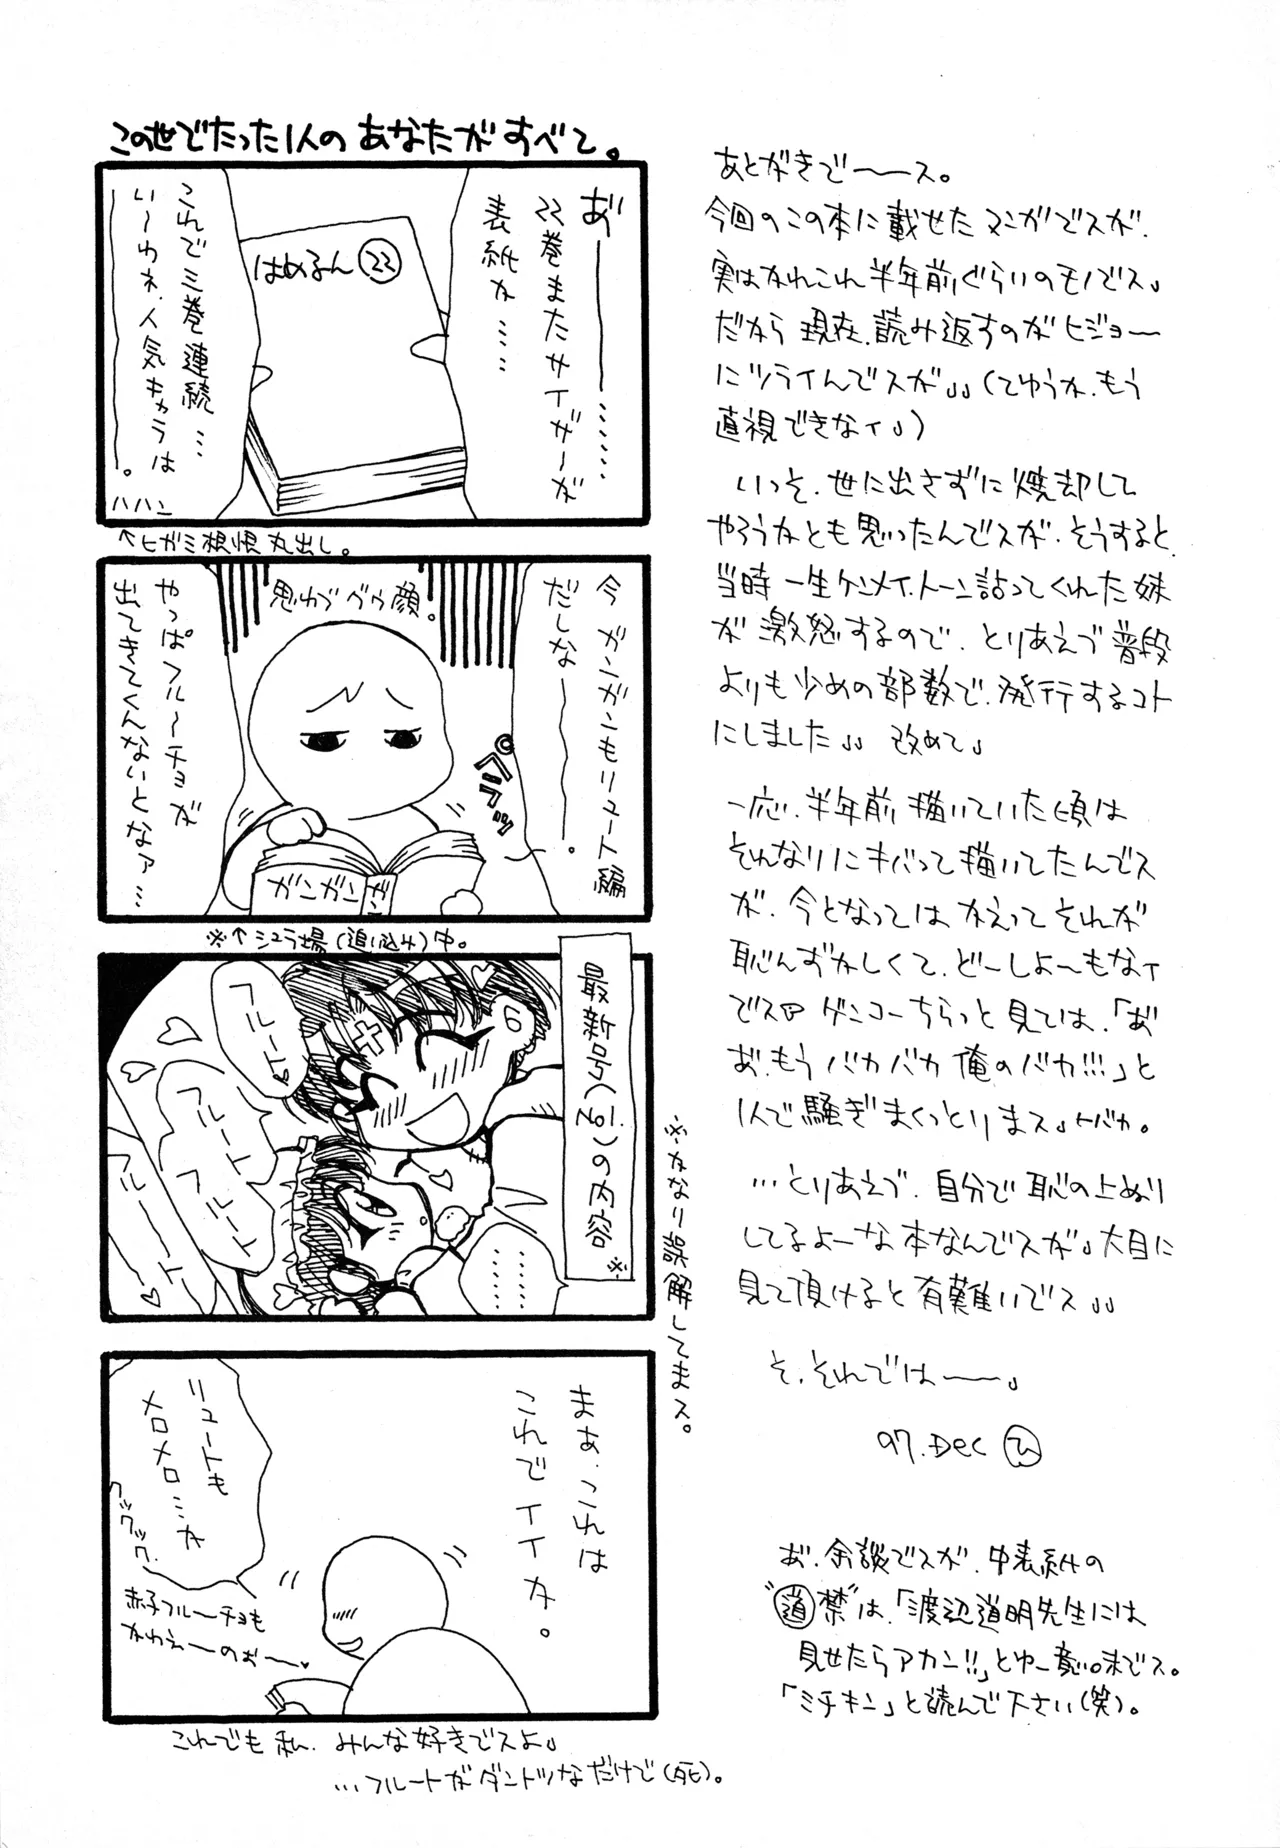 この世でたった1人のあなたがすべて。
あ゛ーーー………
22巻またサイザーが
表紙か……
はめるん㉒
これで三巻連続…
い〜わネ、人気キャラは
ーーー。
ハハン
↑ヒガミ根性丸出し。
今ガンガンもリュート編
だしなーーー。
思わずベクウ顔。
ペラッ
ガンガン
ガン
やっぱフルーチョが
出てきてくんないとなァ…
※↑シュラ場(追い込み)中。
最新号(No1.)の内容※
フルート♥
フルート
フルート
フルートー
フルートー♥
………
※かなり誤解してまス。
まぁ、これは
これでイイか。
リュートも
メロメロ…か
クックックックッ
赤子フルーチョも
かわえーのぉー♥
これでも私、みんな好きでスよ。
…フルートがダントツなだけで(死)。
あとがきでーース。
今回のこの本に載せたマンガでスが、
実はかれこれ半年前ぐらいのモノでス。
だから現在、読み返すのがヒジョー
にツライんでスが。。(てゆうか、もう
直視できなイ。)
いっそ、世に出さずに焼却して
やろうかとも思ったんでスが、そうすると、
当時一生ケンメイ、トーン貼ってくれた妹
が激怒するので、とりあえず普段
よりも少めの部数で、発行するコト
にしました。。改めて。
一応、半年前描いていた頃は
それなりにキバって描いてたんでス
が、今となってはかえってそれが
恥ずかしくて、どーしよーもなイ
でス ゲンコーちらっと見ては、「お゛
お゛、もうバカバカ俺のバカ!!!」と
1人で騒ぎまくっとりまス。トバカ。
…とりあえず、自分で恥の上ぬり
してるよーな本なんでスが。大目に
見て頂けると有難いでス。。
そ、それではーー。
97.Dec ひ
あ゛、余談でスが、中表紙の
"道禁"は、「渡辺道明先生には
見せたらアカン!!」とゆー意味でス。
「ミチキン」と読んで下さい(笑)。